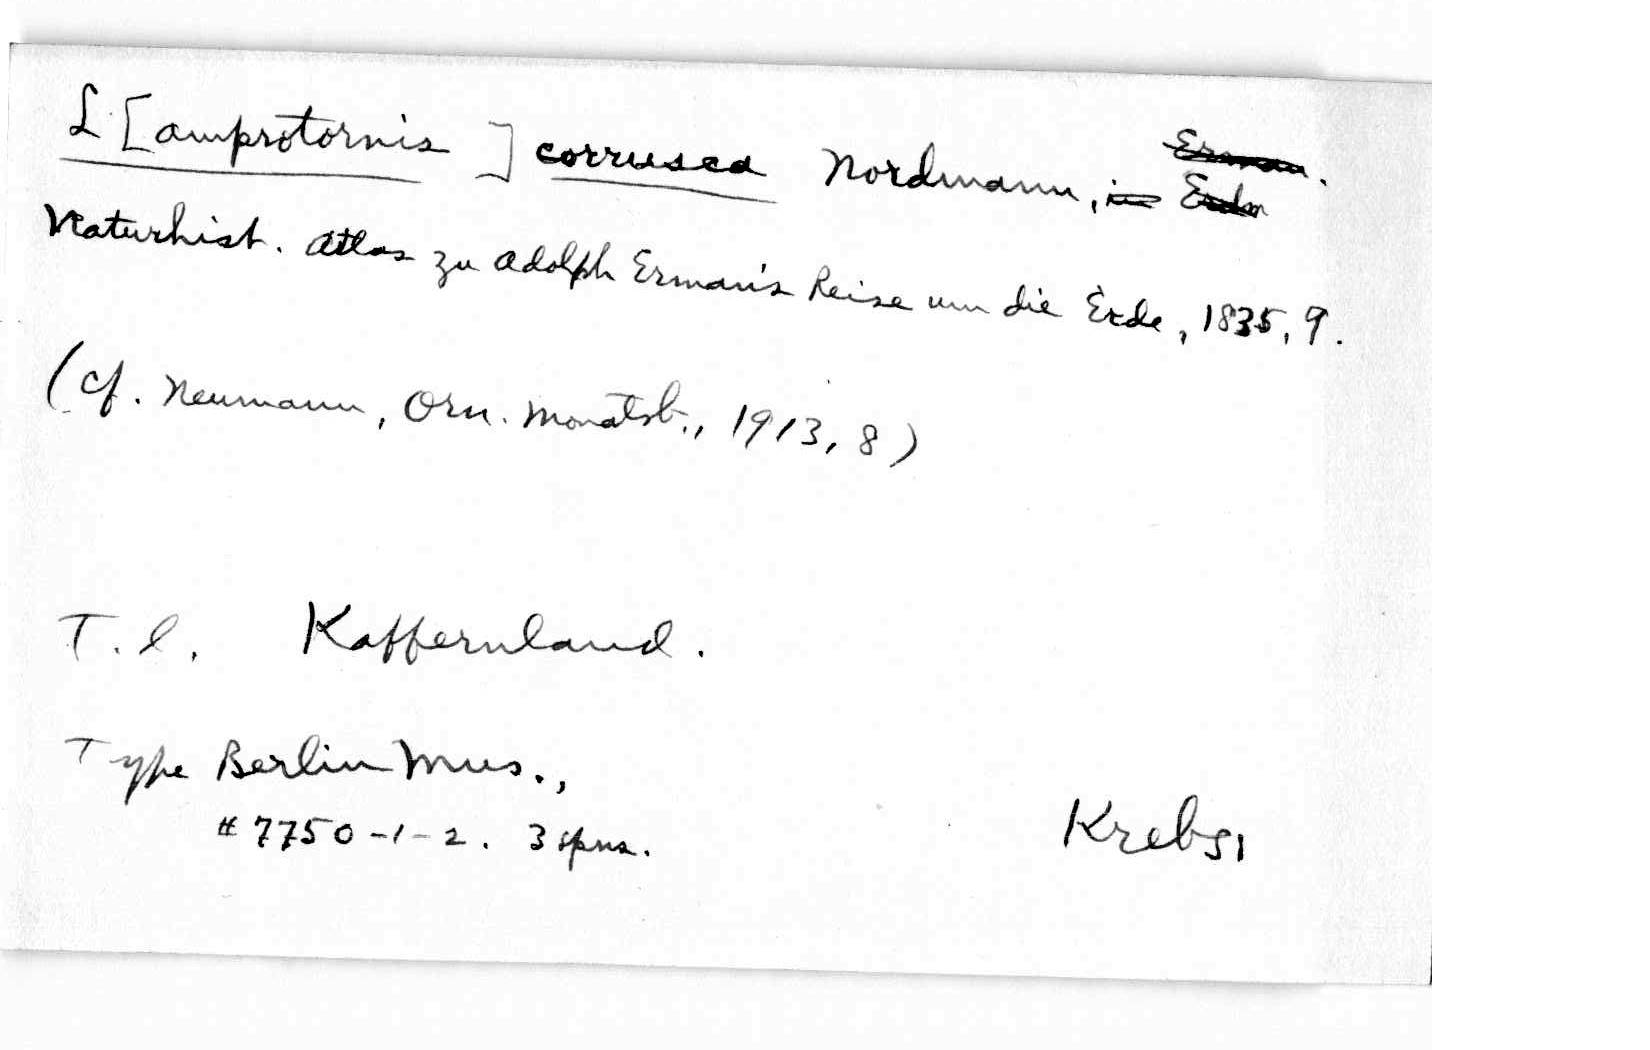 L[amprotornis] corrusca Nordmann, in Erman.
Naturhist. Atlas zu Adolph Erman's Reise um die Erde, 1835, 9.
(cf. Neumann, Orn. Monatsb., 1913, 8)
T.l. Kaffernland.
Type Berlin Mus.,
# 7750-1-2. 3 spns.
Krebs,